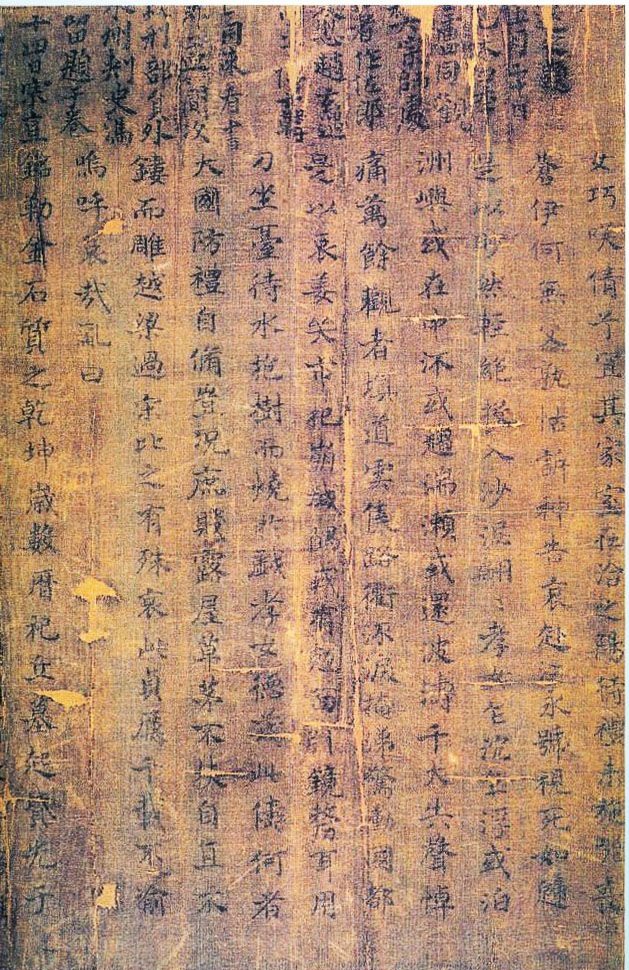 女巧咲倩兮宜其家室在洽之陽待禮未施嗟喪
蒼伊何無父孰怙訴神告哀赴江永號視死如歸
是以眇然輕絕投入沙泥翩〻孝女乍沉乍浮或泊
洲嶼或在中流或趨湍瀨或還波濤千夫失聲悼
痛萬餘觀者填道雲集路衢流淚掩涕驚動國都
是以哀姜哭市杞崩城隅或有尅面引鏡剺耳用
刀坐臺待水抱樹而燒於戲孝女德茂此儔何者
大國防禮自脩豈況庶賤露屋草茅不扶自直不
鏤而雕越梁過宋比之有殊哀此貞厲千載不渝
嗚呼哀哉亂曰
銘勒金石質之乾坤歲數曆祀立墓起墳光于
同觀
刑部員外
刺史馮
留題于卷
十四日